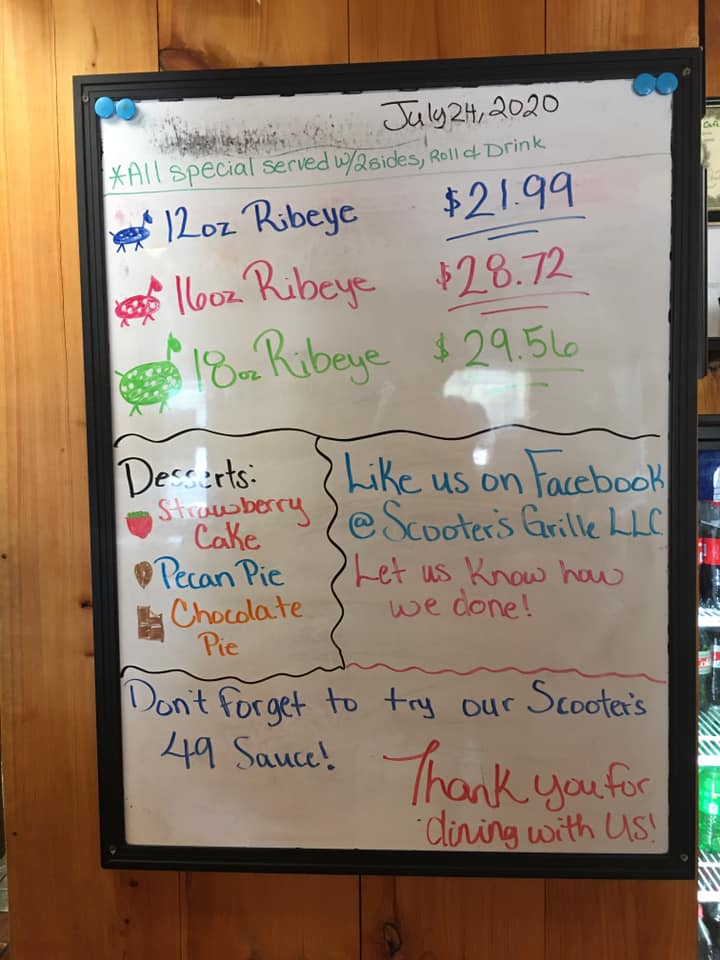 July 24, 2020
*All special served w/2 sides, Roll & Drink
12oz Ribeye $21.99
16oz Ribeye $28.72
18oz Ribeye $29.56
Desserts:
Strawberry
Cake
Pecan Pie
Chocolate
Pie
Like us on Facebook
@ Scooter's Grille LLC
Let us know how
we done!
Don't forget to try our Scooter's
49 Sauce!
Thank you for
dining with US!